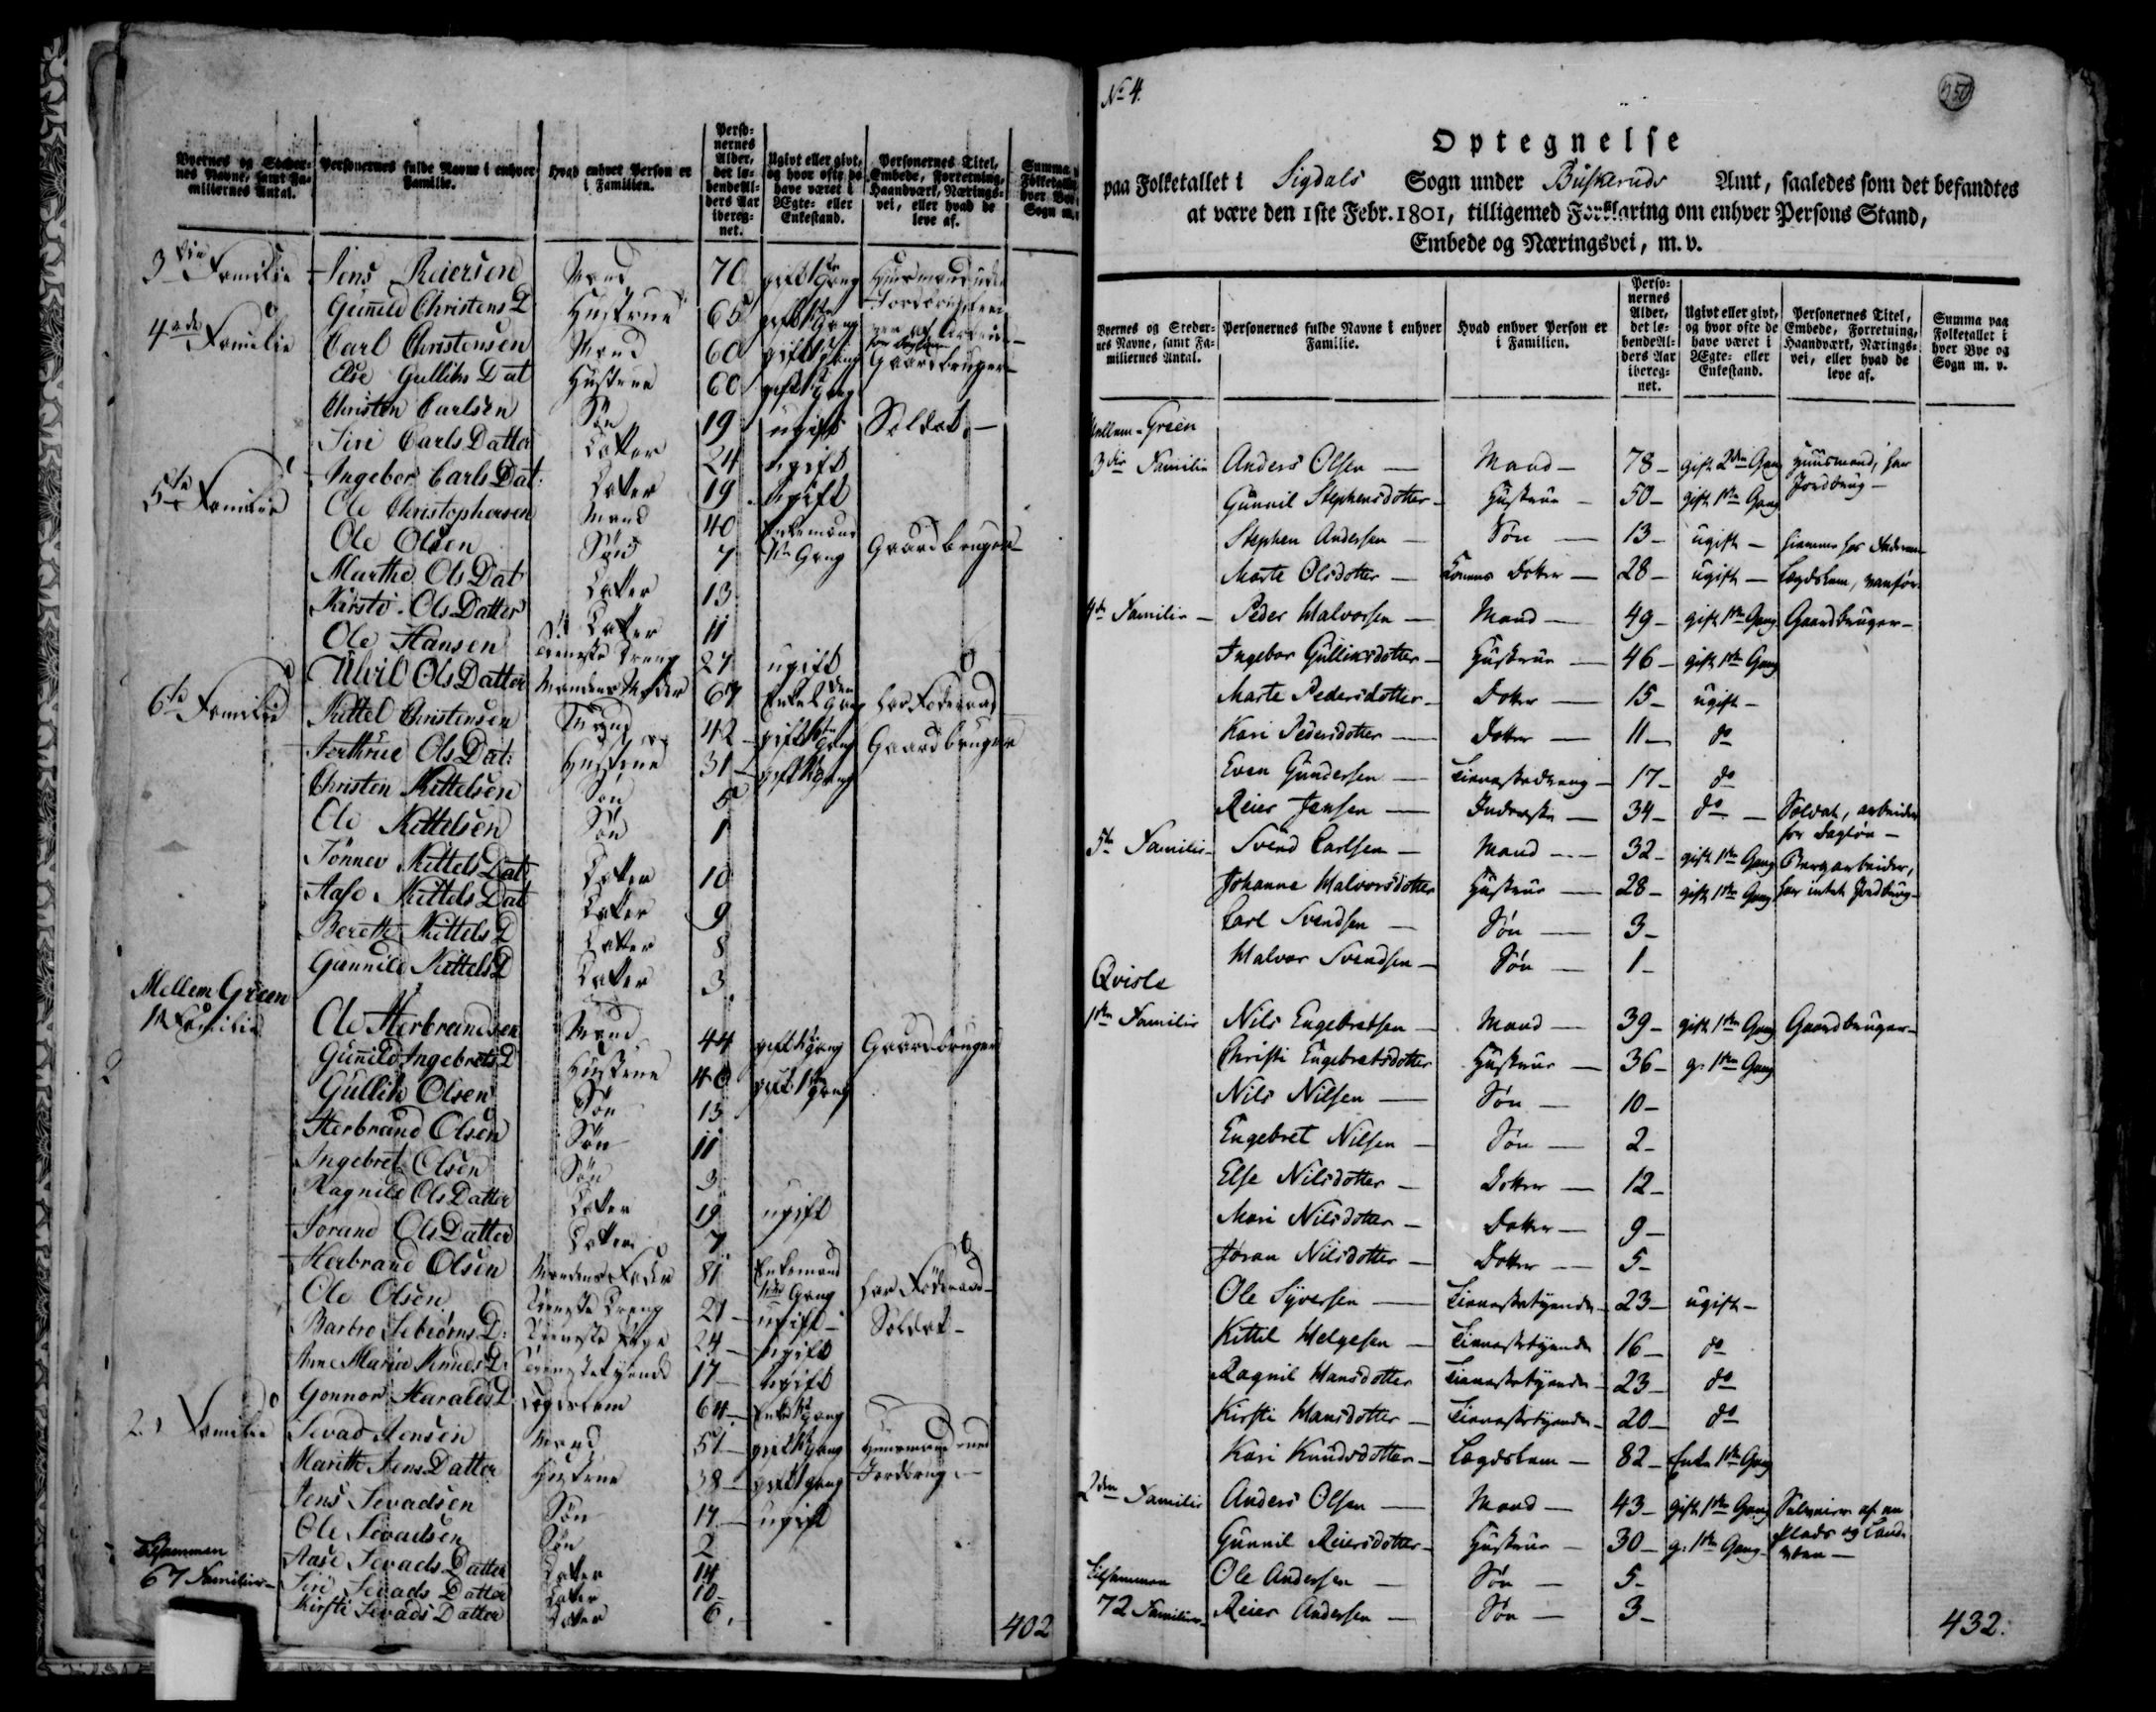 Byernes og Steder-nes Navne, samt Fa-miliernes Antal. Personernes fulde Navne i enhver Familie. Hvad enhver Person er i Familien. Perso-nernes Alder, det lø-bende Al-ders Aar ibereg-net. Ugivt eller givt, og hvor ofte de have været i Ægte- eller Enkestand. Personernes Titel, Embede, Forretning, Haandværk, Nærings-vei, eller hvad de leve af.
3die Familie Jens Reiersen Mand 70 gift 1te Gang Huusmand uden
Gunnild Christens D Hustrue 65 gift 1te Gang Jordbrug
4de Familie Carl Christensen Mand 60 gift 1te Gang Gaardbruger
Else Gulliks Dat Hustrue 60 gift 1te Gang
Christen Carlsen Søn 19 ugift Soldat
Siri Carls Datter Datter 24 ugift
Ingebor Carls Dat: Datter 19 ugift
5te Familie Ole Christophersen Mand 40 Enkemand
Ole Olsen Søn 7 1te Gang Gaardbruger
Marthe Ols Dat Datter 13
Kirsti Ols Datter Datter 11
Ole Hansen Tieneste Dreng 27 ugift
Ulvil Ols Datter Mandens Moder 67 Enke 2den Gang har Føderaad
6te Familie Kittel Christensen Mand 42 gift 1te Gang Gaardbruger
Jerthrue Ols Dat: Hustrue 31 gift 1te Gang
Christen Kittelsen Søn 5
Ole Kittelsen Søn 1
Jönnev Kittels Dat: Datter 10
Aase Kittels Dat Datter 9
Berethe Kittels D Datter 8
Gunnild Kittels D Datter 3
Mellem Green
1te Familie Ole Herbrandsen Mand 44 gift 1te Gang Gaardbruger
Gunild Ingebrets D Hustrue 40 gift 1te Gang
Gullik Olsen Søn 13
Herbrand Olsen Søn 11
Ingebret Olsen Søn 3
Ragnild Ols Datter Datter 19 ugift
Jorand Ols Datter Datter 7
Herbrand Olsen Mandens Fader 81 Enkemand 1te Gang har Føderaad
Ole Olsen Tieneste Dreng 21 ugift Soldat
Barbro D: Tieneste Pige 24 ugift
Anne Marie Knuds D: Tienestetyende 17 ugift
Gonnor Haralds D: Lægdslem 64 Enke 1te Gang
2. Familie Sevad Jensen Mand 51 gift 1te Gang Huusmand med
Marithe Jens Datter Hustrue 38 gift 1te Gang Jordbrug
Jens Sevadsen Søn 17 ugift
Ole Sevadsen Søn 2
Aase Sevads Datter Datter 14
Siri Sevads Datter Datter 10
Kirsti Sevads Datter Datter 6
Tilsammen
67 Familier
402
No 4.
Optegnelse
paa Folketallet i Sigdals Sogn under Buskeruds Amt, saaledes som det befandtes
at være den 1ste Febr. 1801, tilligemed Forklaring om enhver Persons Stand,
Embede og Næringsvei, m. v.
Byernes og Steder-nes Navne, samt Fa-miliernes Antal. Personernes fulde Navne i enhver Familie. Hvad enhver Person er i Familien. Perso-nernes Alder, det lø-bende Al-ders Aar ibereg-net. Ugivt eller givt, og hvor ofte de have været i Ægte- eller Enkestand. Personernes Titel, Embede, Forretning, Haandværk, Nærings-vei, eller hvad de leve af. Summa paa Folketallet i hver Bye og Sogn m. v.
Mellem-Green
3die Familie Anders Olsen Mand 78 gift 2den Gang Huusmand, har
Gunnil Stephensdotter Hustrue 50 gift 1ste Gang Jordbrug
Stephen Andersen Søn 13 ugift
Marte Olsdotter Konens Dotter 28 ugift Lægdslem, vanfør
4de Familie Peder Halvorsen Mand 49 gift 1ste Gang Gaardbruger
Ingebor Gulliksdotter Hustrue 46 gift 1ste Gang
Marte Pedersdotter Dotter 15 ugift
Kari Pedersdotter Dotter 11 do
Even Gundersen Tienestedreng 17 do
Reier Jensen Inderste 34 do Soldat, arbeider for Dagløn
5te Familie Svend Carlsen Mand 32 gift 1ste Gang Bergarbeider,
Johanne Halvorsdotter Hustrue 28 gift 1ste Gang har intet Jordbrug
Carl Svendsen Søn 3
Halvor Svendsen Søn 1
Qvisle
1ste Familie Nils Engebretsen Mand 39 gift 1ste Gang Gaardbruger
Christi Engebretsdotter Hustrue 36 g. 1ste Gang
Nils Nilsen Søn 10
Engebret Nilsen Søn 2
Else Nilsdotter Dotter 12
Mari Nilsdotter Dotter 9
Jøran Nilsdotter Dotter 5
Ole Syversen Tienestetyende 23 ugift
Kittil Helgesen Tienestetyende 16 do
Ragnil Hansdotter Tienestetyende 23 do
Kirsti Hansdotter Tienestetyende 20 do
Kari Knudsdotter Lægdslem 82 Enke 1ste Gang
2den Familie Anders Olsen Mand 43 gift 1ste Gang Selveier af en
Gunnil Reiersdotter Hustrue 30 g. 1ste Gang Plads og
Tilsammen Ole Andersen Søn 5
72 Familier Reier Andersen Søn 3
432.